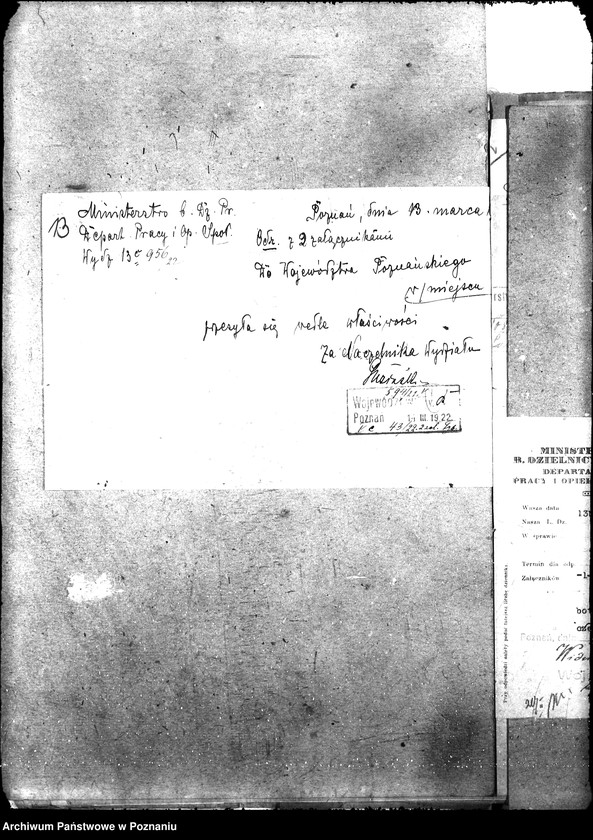 13
Ministerstwo b. Dz. Pr.
Depart. Pracy i Op. Społ.
Wydz. 13c 956/22
Poznań, dnia 13. marca
Odz. z 2 załącznikami
Do Województwa Poznańskiego
w/miejscu
przesyła się wedle właściwości
Za Naczelnika Wydziału
Wojewódz
Poznań 14 III. 19.22
MINIST
B. DZIELNIC
DEPARTA
PRACY I OPIEK
Wasza data
Nasza L. Dz. 13
W sprawie
Termin dla odp.
Załączników -1
Przy odpowiedzi należy podać
Poznań, dnia
Archiwum Państwowe w Poznaniu